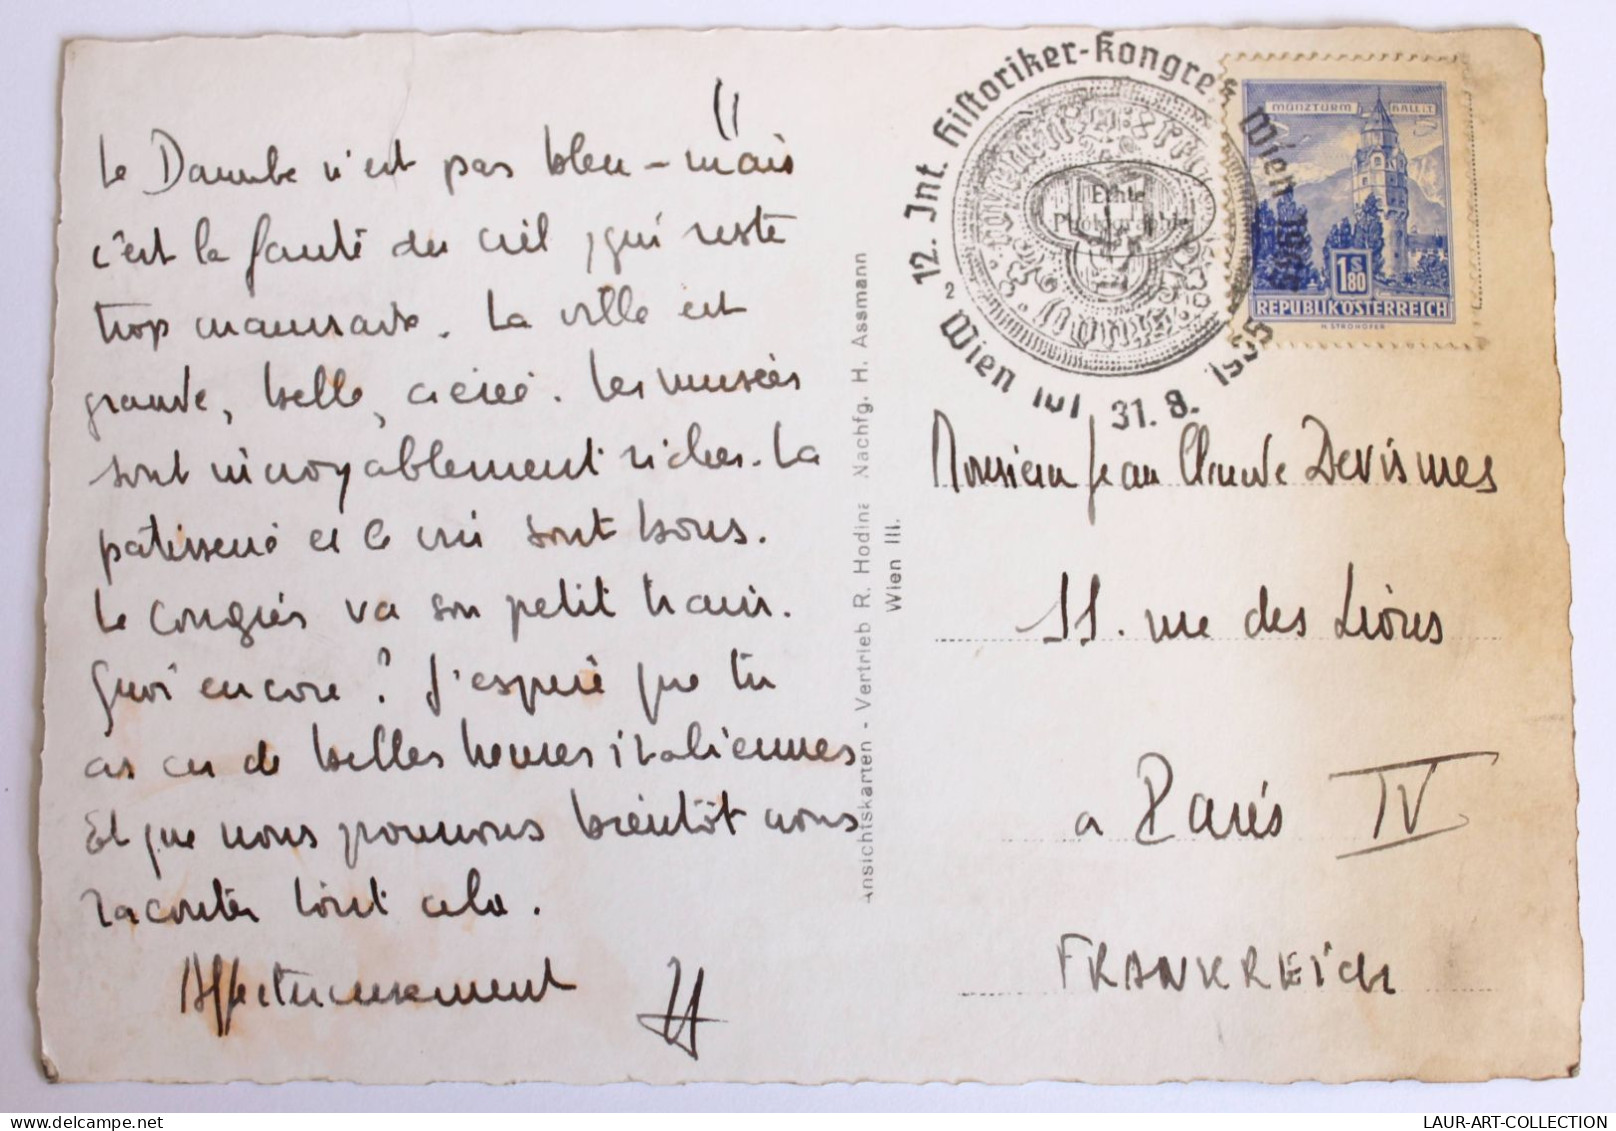 Le Danube n'est pas bleu – mais
c'est la faute du ciel, qui reste
trop mauvais. La ville est
grande, belle, aérée. Les musées
sont incroyablement riches. La
patisserie et le vin sont bons.
Le congrès va son petit train.
Quoi encore ? J'espère que tu
as eu de belles heures italiennes
Et que nous pourrons bientôt nous
raconter tout cela.
Affectueusement
Ansichtskarten - Vertrieb R. Hodina Nachfg. H. Assmann
Wien III.
12. Int. Historiker-Kongreß Wien
2 Wien 101 31.8.
Echte
MÜNZTURM HALL i.T.
1 S 80
REPUBLIK ÖSTERREICH
H. STROHOFER
Monsieur Jean Claude Devismes
11. rue des Lions
a Paris IV
FRANKREICH
LAUR-ART-COLLECTION